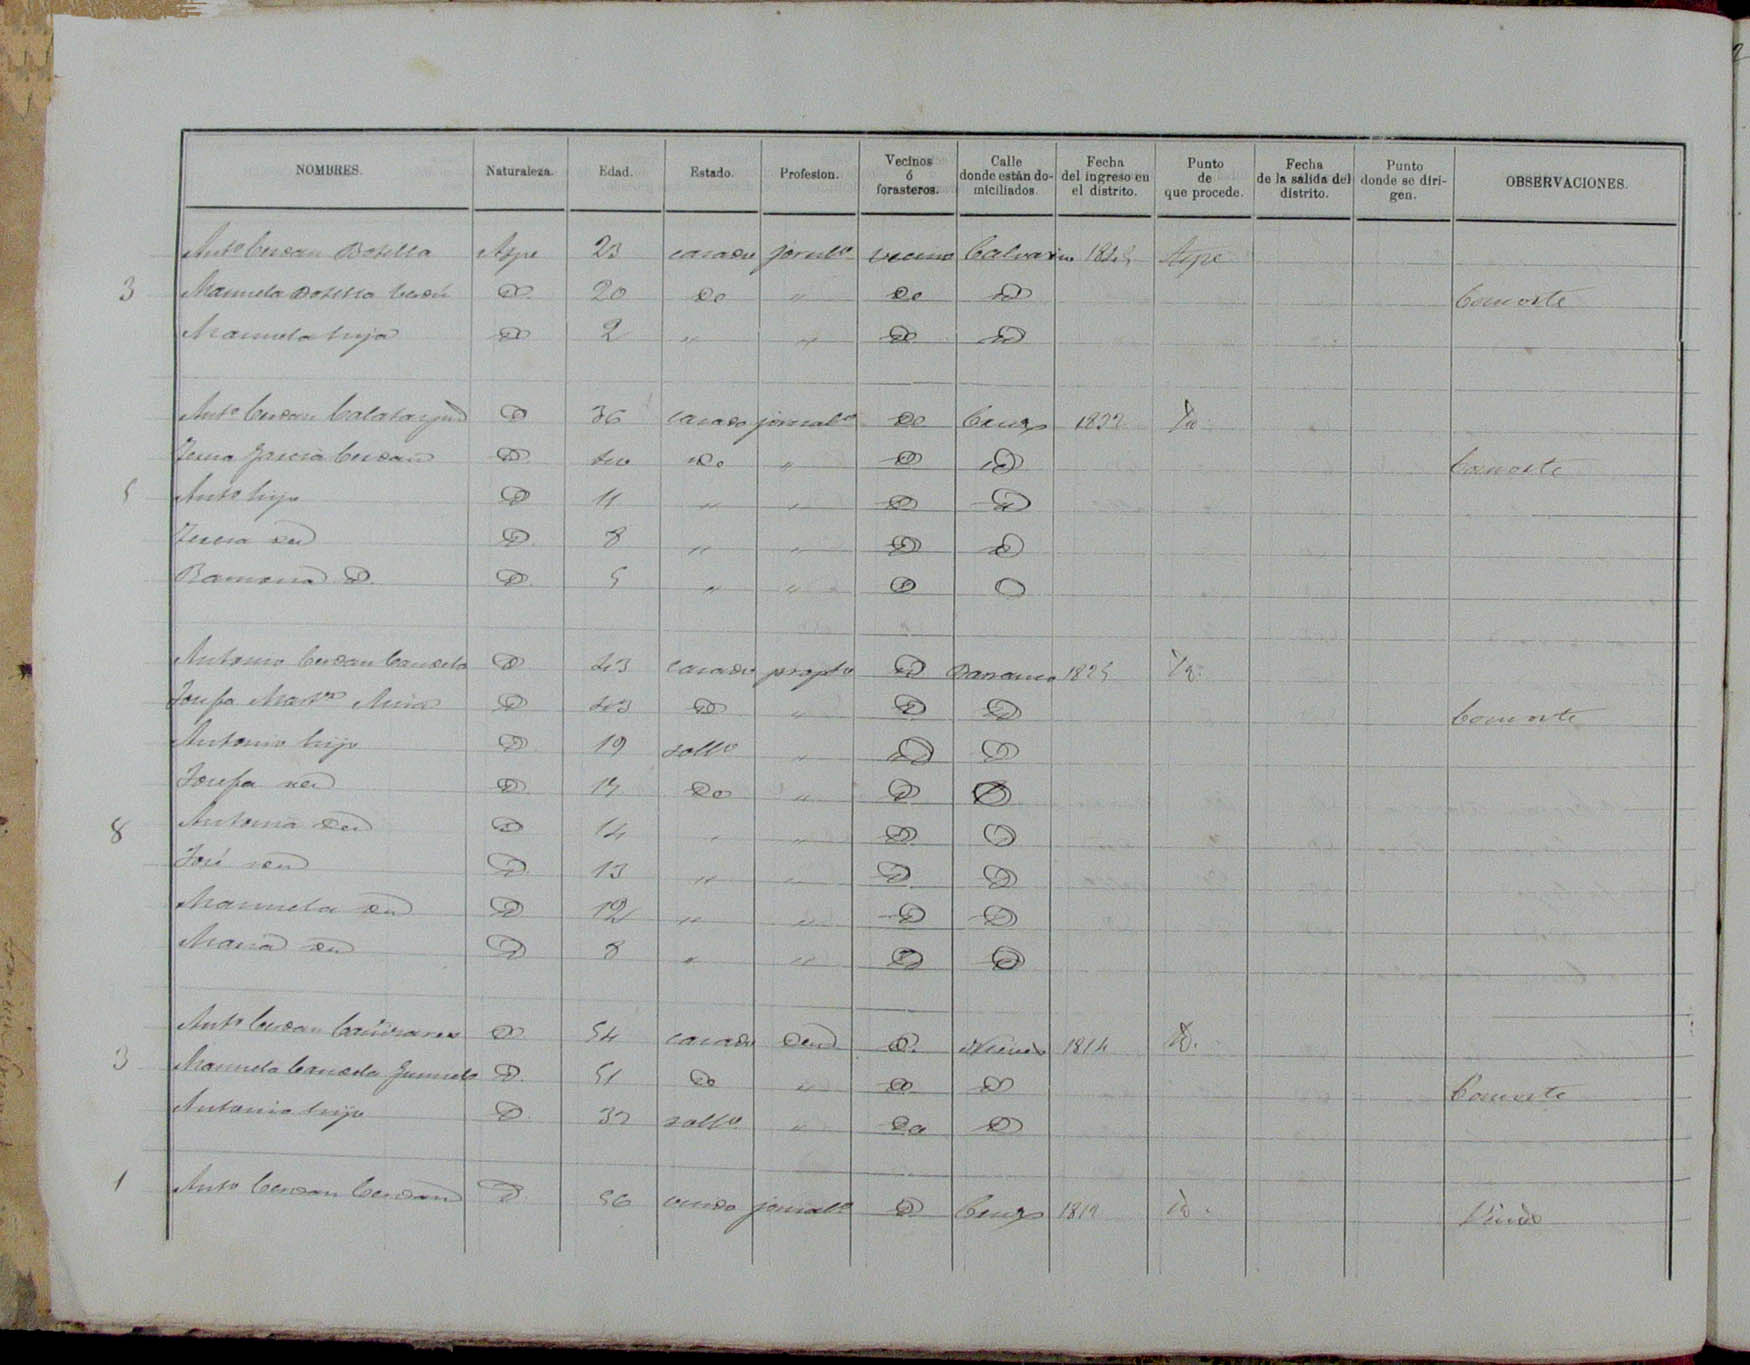 NOMBRES. Naturaleza. Edad. Estado. Profesion. Vecinos ó forasteros. Calle donde están domiciliados. Fecha del ingreso en el distrito. Punto de que procede. Fecha de la salida del distrito. Punto donde se dirigen. OBSERVACIONES.
Anto Cerdan Botella Aspe 23 casado jornalo vecino Calvario Aspe
3 Manuela Botella Cerdá Do 20 Do " Do Do Consorte
Manuela hija Do 2 " " Do Do
Anto Cerdan Calatayud Do 36 casado jornalo Do Cruz 1832 Yd.
Garcia Cerdan Do Do " Do Do Consorte
5 Anto hijo Do 11 " " Do Do
id Do 8 " " Do Do
Ramona D. Do 5 " " Do Do
Antonio Cerdan Candela Do 43 casado propto Do 1825 Yd.
Josefa Marts Mira Do 43 Do " Do Do Consorte
Antonio hijo Do 19 solto " Do Do
Josefa id Do Do " Do Do
8 Antonia id Do 14 " " Do Do
José id Do 13 " " Do Do
Manuela id Do 12 " " Do Do
Maria id Do 8 " " Do Do
Anto Cerdan Cañizares Do 54 casado id Do 1814 Yd.
3 Manuela Candela Do 51 Do " Do Do Consorte
Antonio hijo Do 32 solto " Do Do
1 Anto Cerdan Cerdan Do 56 viudo jornalo Do Cruz 1812 Yd. Viudo